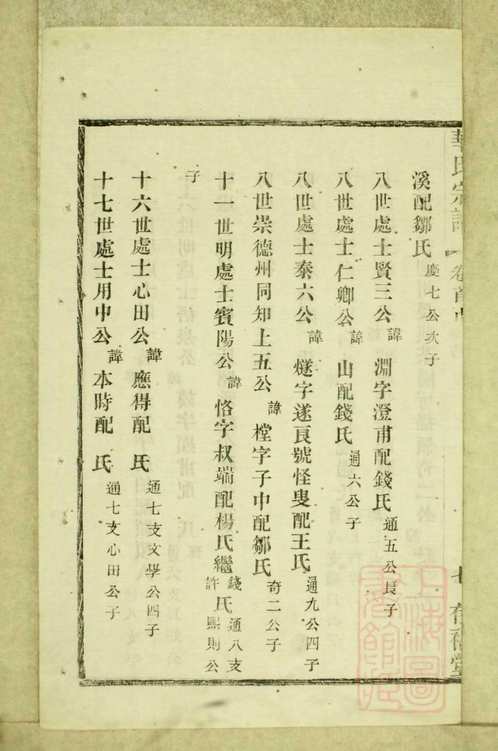 華氏宗譜 卷首中
溪配鄒氏 慶七公次子
八世處士賢三公 諱 淵字澄甫配錢氏 通五公長子
八世處士仁卿公 諱 山配錢氏 通六公子
八世處士泰六公 諱 燧字遂良號怪叟配王氏 通九公四子
八世崇德州同知上五公 諱 樘字子中配鄒氏 奇二公子
十一世明處士賓陽公 諱 恪字叔端配楊氏繼 錢許氏 通八支熙則公
子
十六世處士心田公 諱 應得配 氏 通七支文學公四子
十七世處士用中公 諱 本時配 氏 通七支心田公子
七
上海圖書館藏